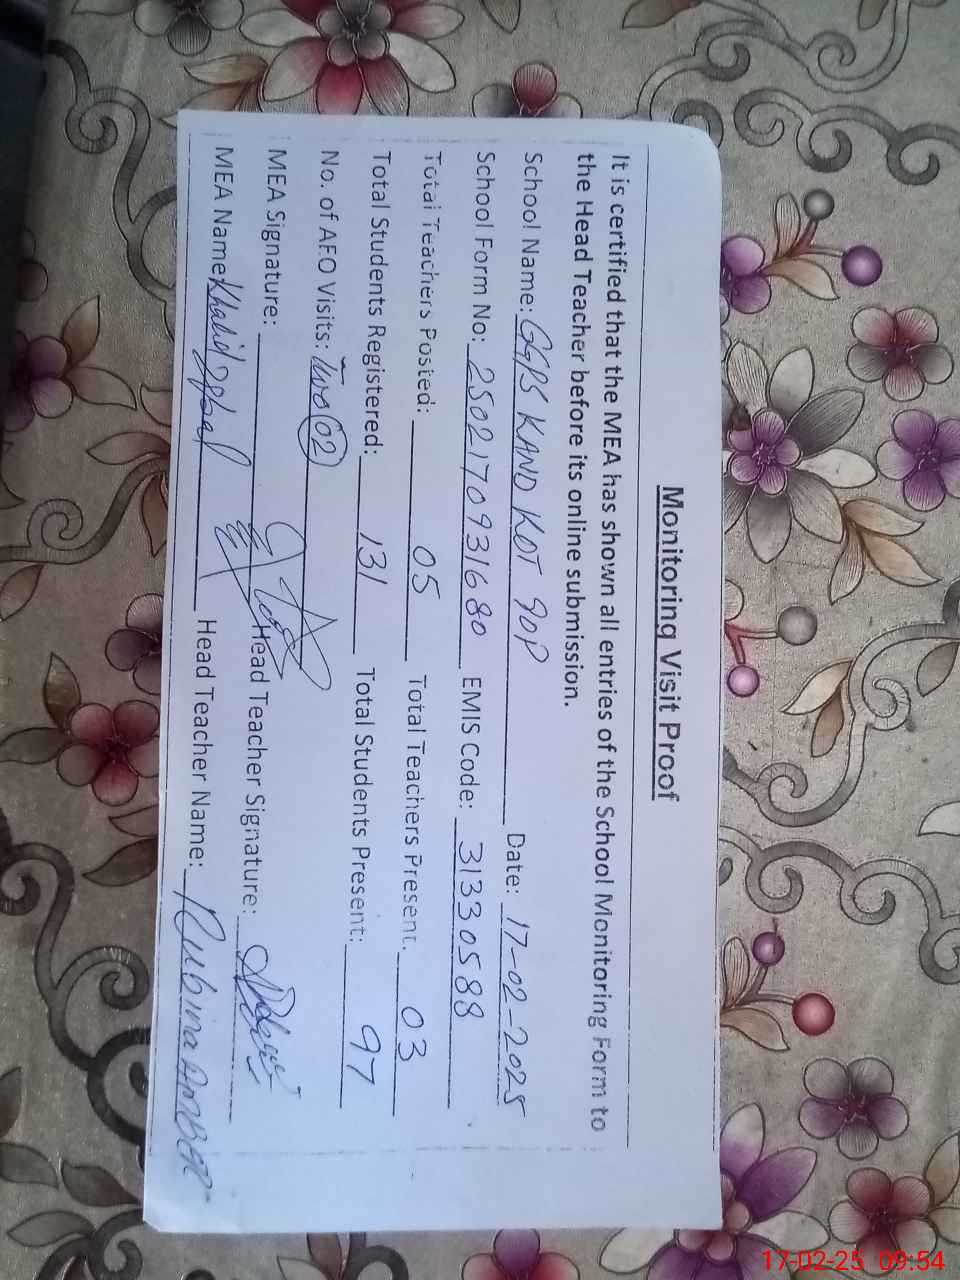 Monitoring Visit Proof
It is certified that the MEA has shown all entries of the School Monitoring Form to
the Head Teacher before its online submission.
School Name: GGPS KAND KOT 90P Date: 17-02-2025
School Form No: 2502170931680 EMIS Code: 31330588
Total Teachers Posted: 05 Total Teachers Present: 03
Total Students Registered: 131 Total Students Present: 97
No. of AEO Visits: Two 02
MEA Signature: Head Teacher Signature:
MEA Name: Khalid Iqbal Head Teacher Name: Rubina AMBER
17-02-25 09:54